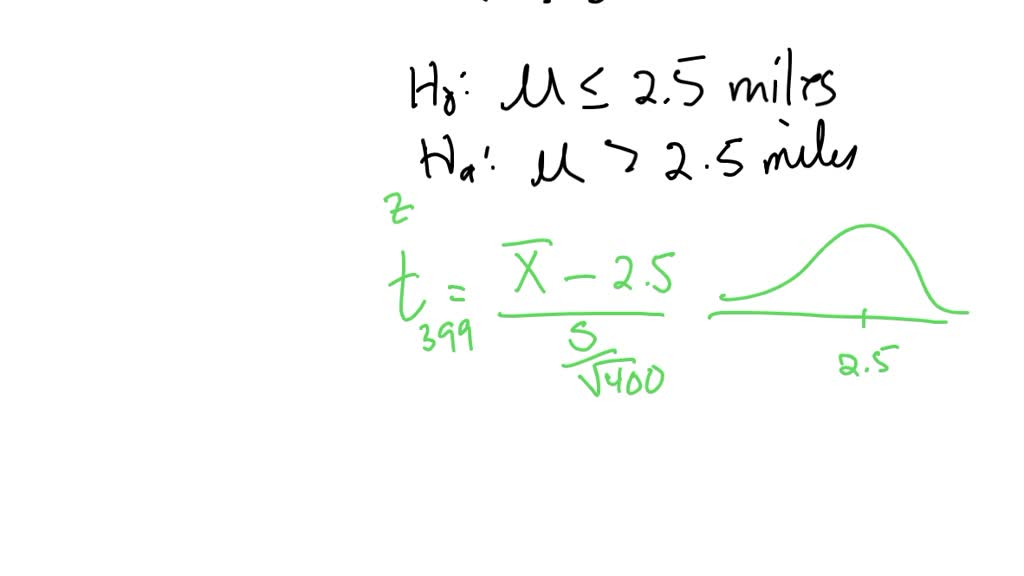 H₀: μ ≤ 2.5 miles
Hₐ: μ > 2.5 miles
z
t₃₉₉ = (x̄ − 2.5) / (s/√400)
2.5